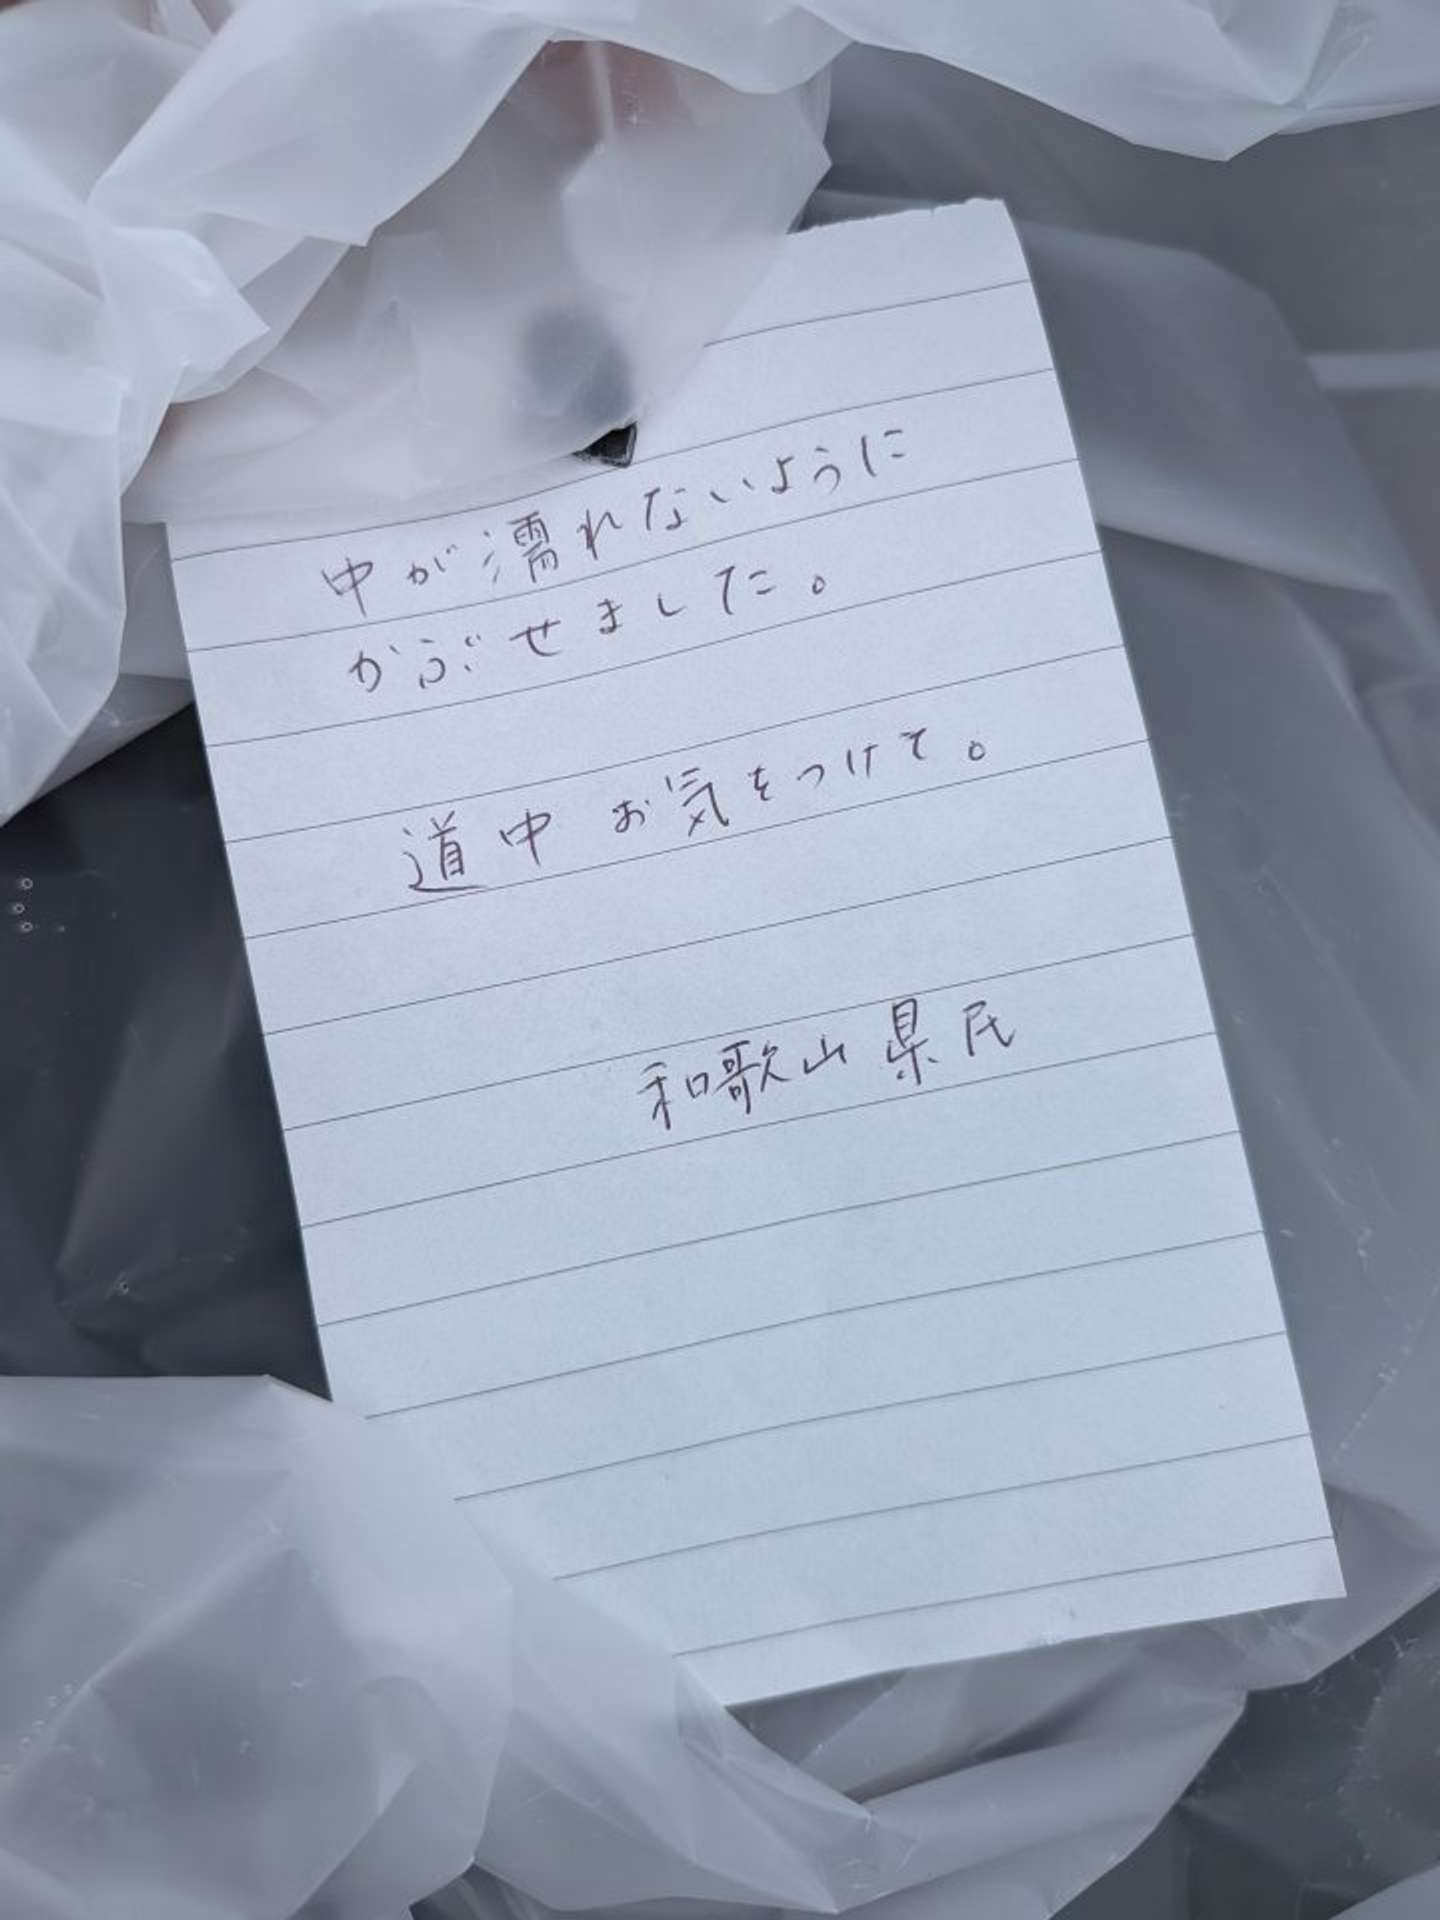 中が濡れないように
かぶせました。
道中 お気をつけて。
和歌山県民